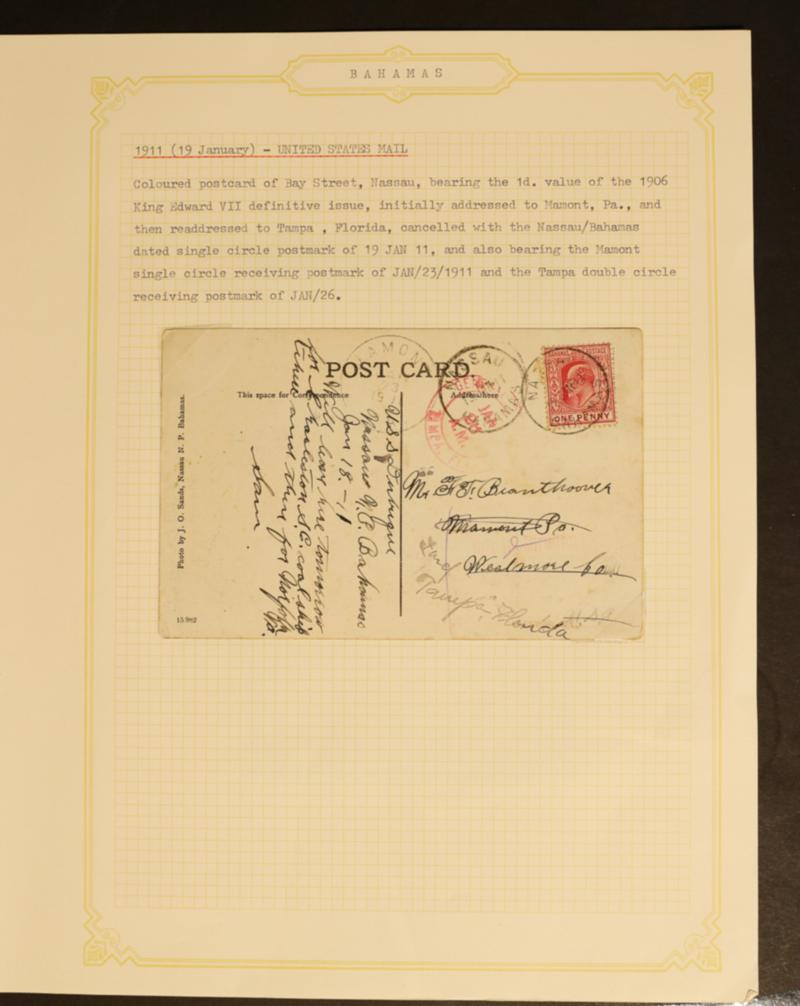 BAHAMAS
1911 (19 January) - UNITED STATES MAIL
Coloured postcard of Bay Street, Nassau, bearing the 1d. value of the 1906
King Edward VII definitive issue, initially addressed to Mamont, Pa., and
then readdressed to Tampa , Florida, cancelled with the Nassau/Bahamas
dated single circle postmark of 19 JAN 11, and also bearing the Mamont
single circle receiving postmark of JAN/23/1911 and the Tampa double circle
receiving postmark of JAN/26.
POST CARD.
This space for Correspondence
Address here
Photo by J. O. Sands, Nassau N. P. Bahamas.
15982
U.S.S.
Nassau N.P. Bahamas
Jan 18.-11
Will leave here tomorrow
for Charleston S.C. coal ship
there and then for Norfolk
Va.
Sam.
MAMONT
NASSAU
BAHAMAS
JAN
ONE PENNY
Mr. F. F. Beanthoover
Mamont Pa.
Westmore Co.
Tampa, Florida